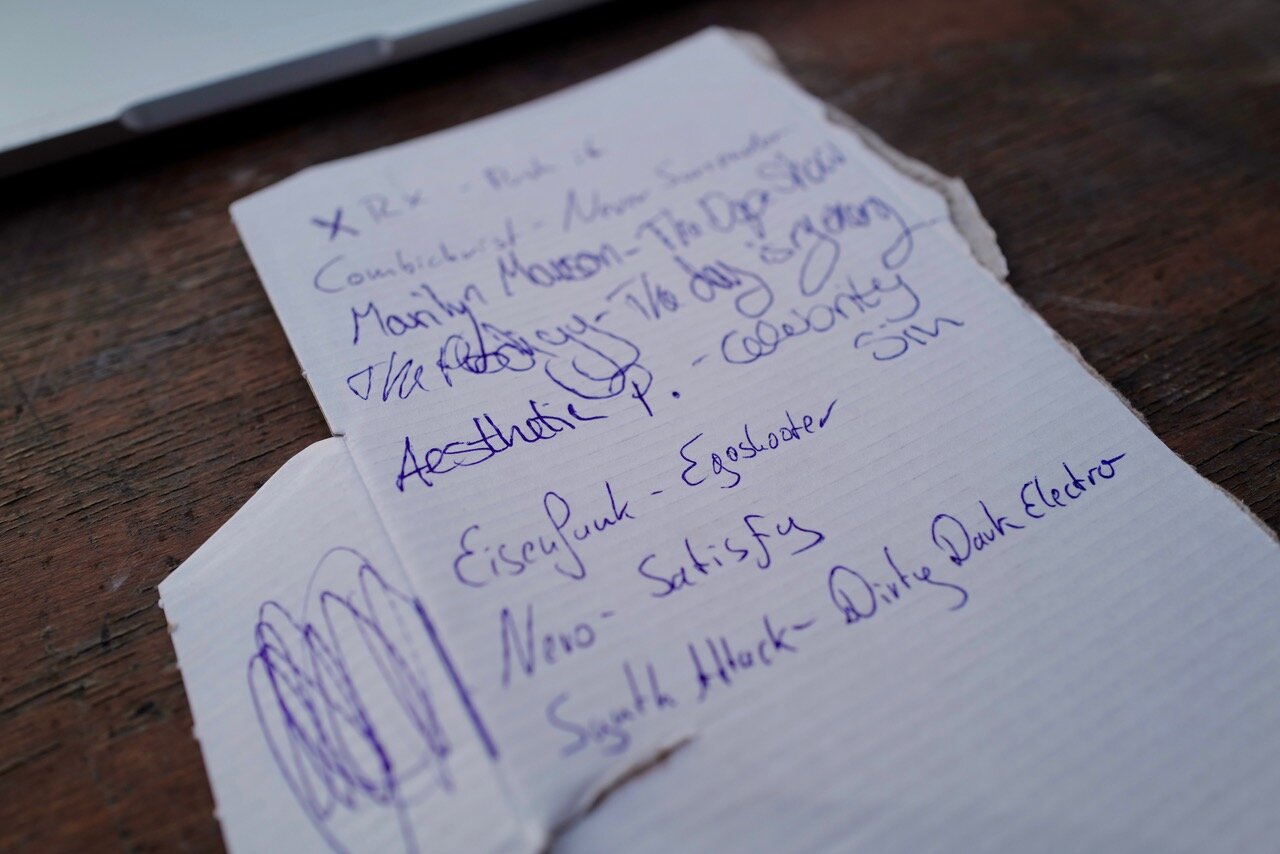 X RX - Push it
Combichrist - Never Surrender
Marilyn Manson - The Dope Show
The Prodigy - The day is my enemy
Aesthetic P. - Celebrity
Sin
Eisenfunk - Egoshooter
Nero - Satisfy
Synth Attack - Dirty Dark Electro